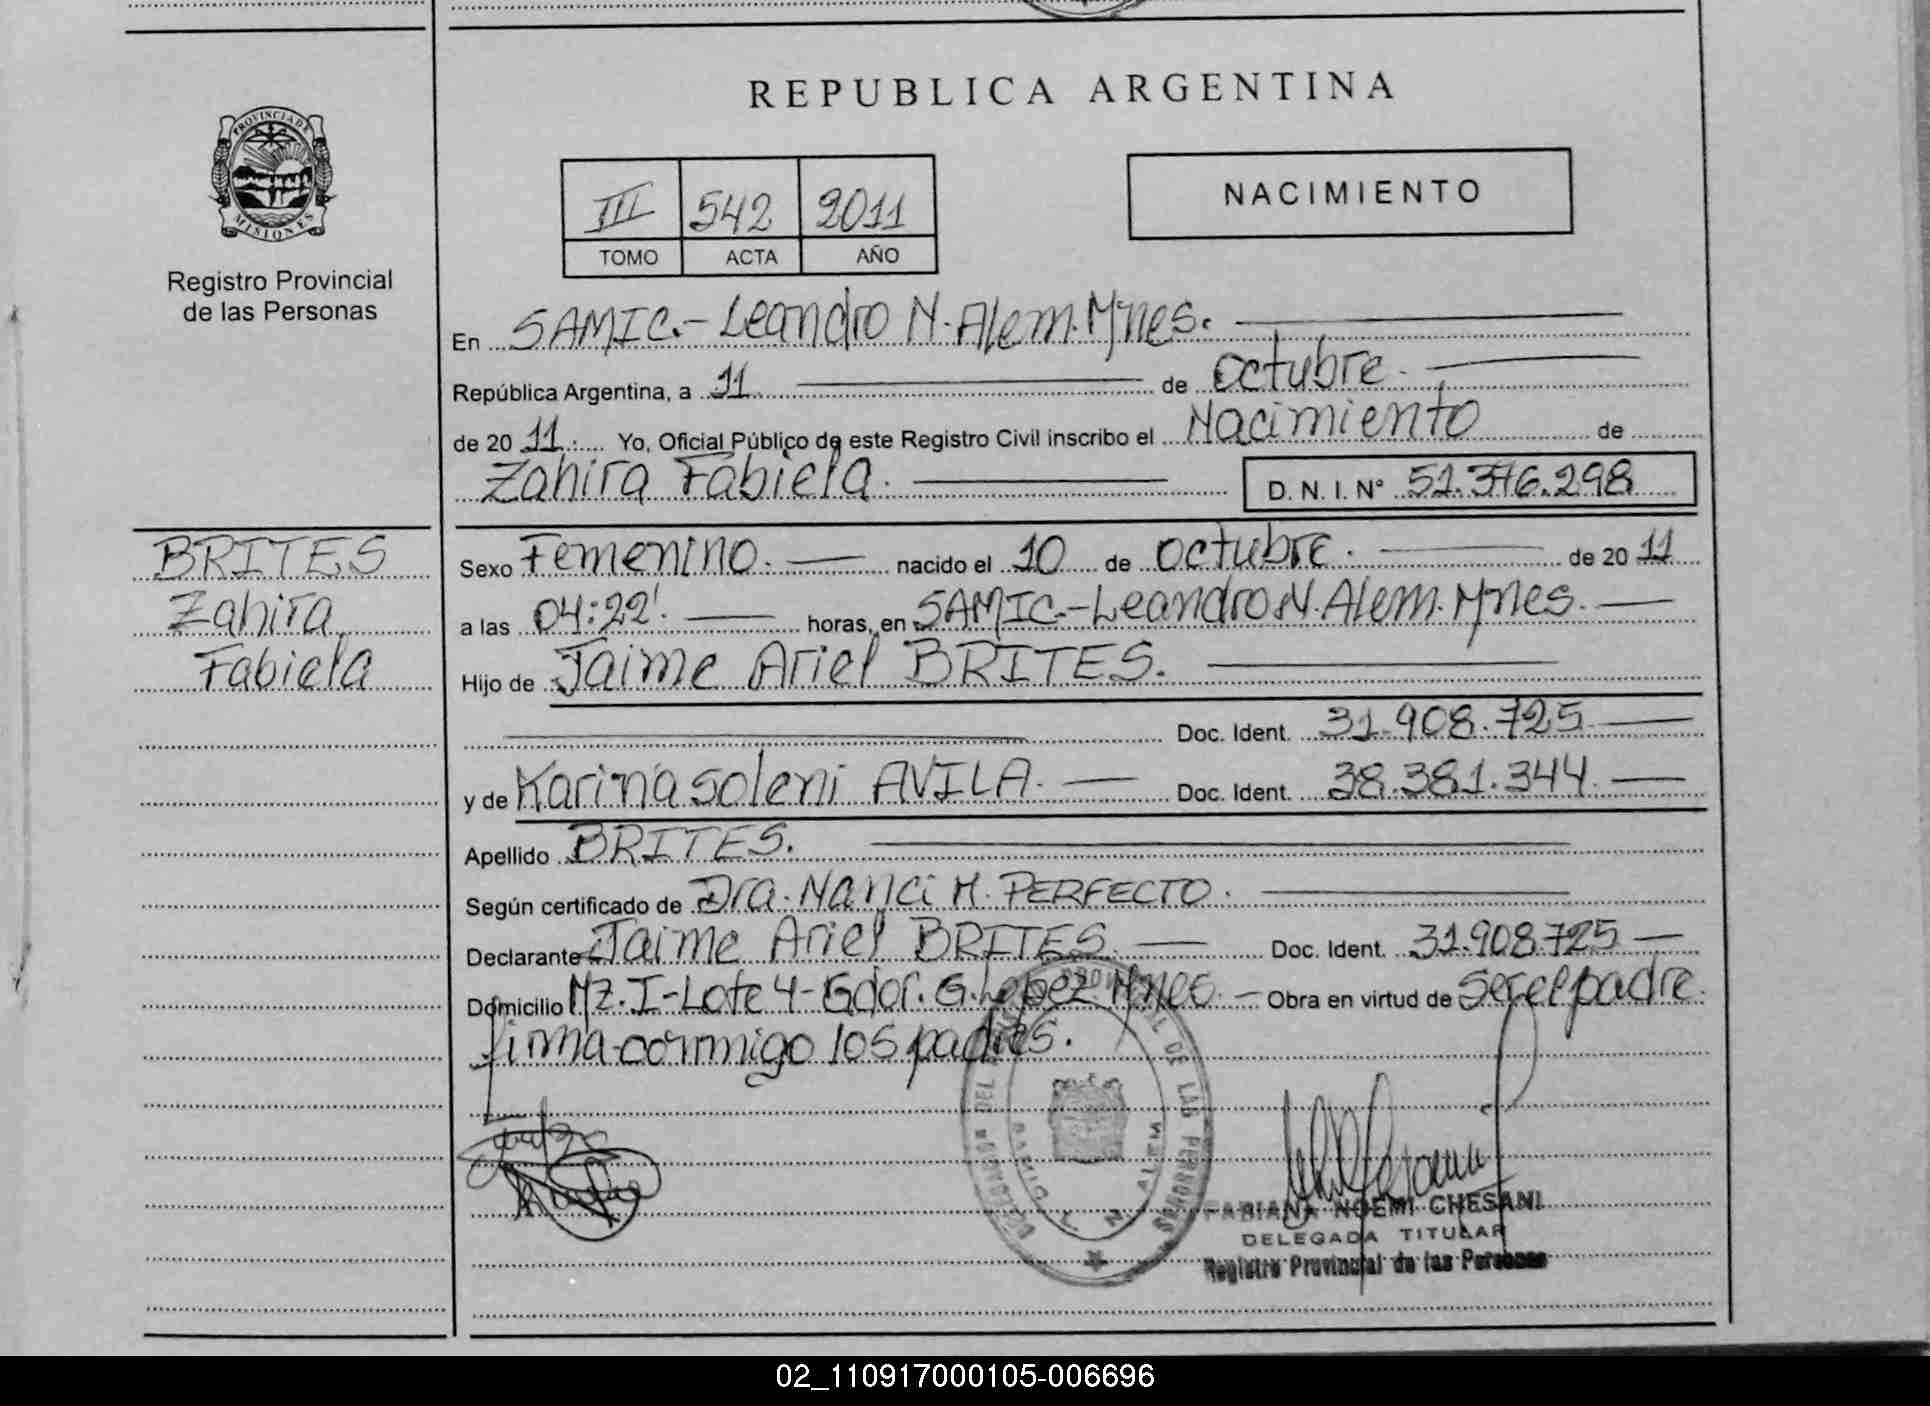 REPUBLICA ARGENTINA
PROVINCIA DE MISIONES
Registro Provincial
de las Personas
III 542 2011
TOMO ACTA AÑO
NACIMIENTO
En SAMIC.- Leandro N. Alem. Mnes.
República Argentina, a 11 de Octubre.
de 20 11. Yo, Oficial Público de este Registro Civil inscribo el Nacimiento de
Zahira Fabiela. D. N. I. N° 51.376.298
BRITES
Zahira
Fabiela
Sexo Femenino. nacido el 10 de Octubre. de 20 11
a las 04:22'. horas, en SAMIC.- Leandro N. Alem. Mnes.
Hijo de Jaime Ariel BRITES.
Doc. Ident. 31.908.725
y de Karina Soleni AVILA. Doc. Ident. 38.381.344.
Apellido BRITES.
Según certificado de Dra. Nanci M. PERFECTO.
Declarante Jaime Ariel BRITES. Doc. Ident. 31.908.725
Domicilio Mz. I-Lote 4-Gdor. G. Lopez. Mnes. Obra en virtud de ser el padre.
firma conmigo los padres.
FABIANA NOEMI CHESANI
DELEGADA TITULAR
Registro Provincial de las Personas
02_110917000105-006696